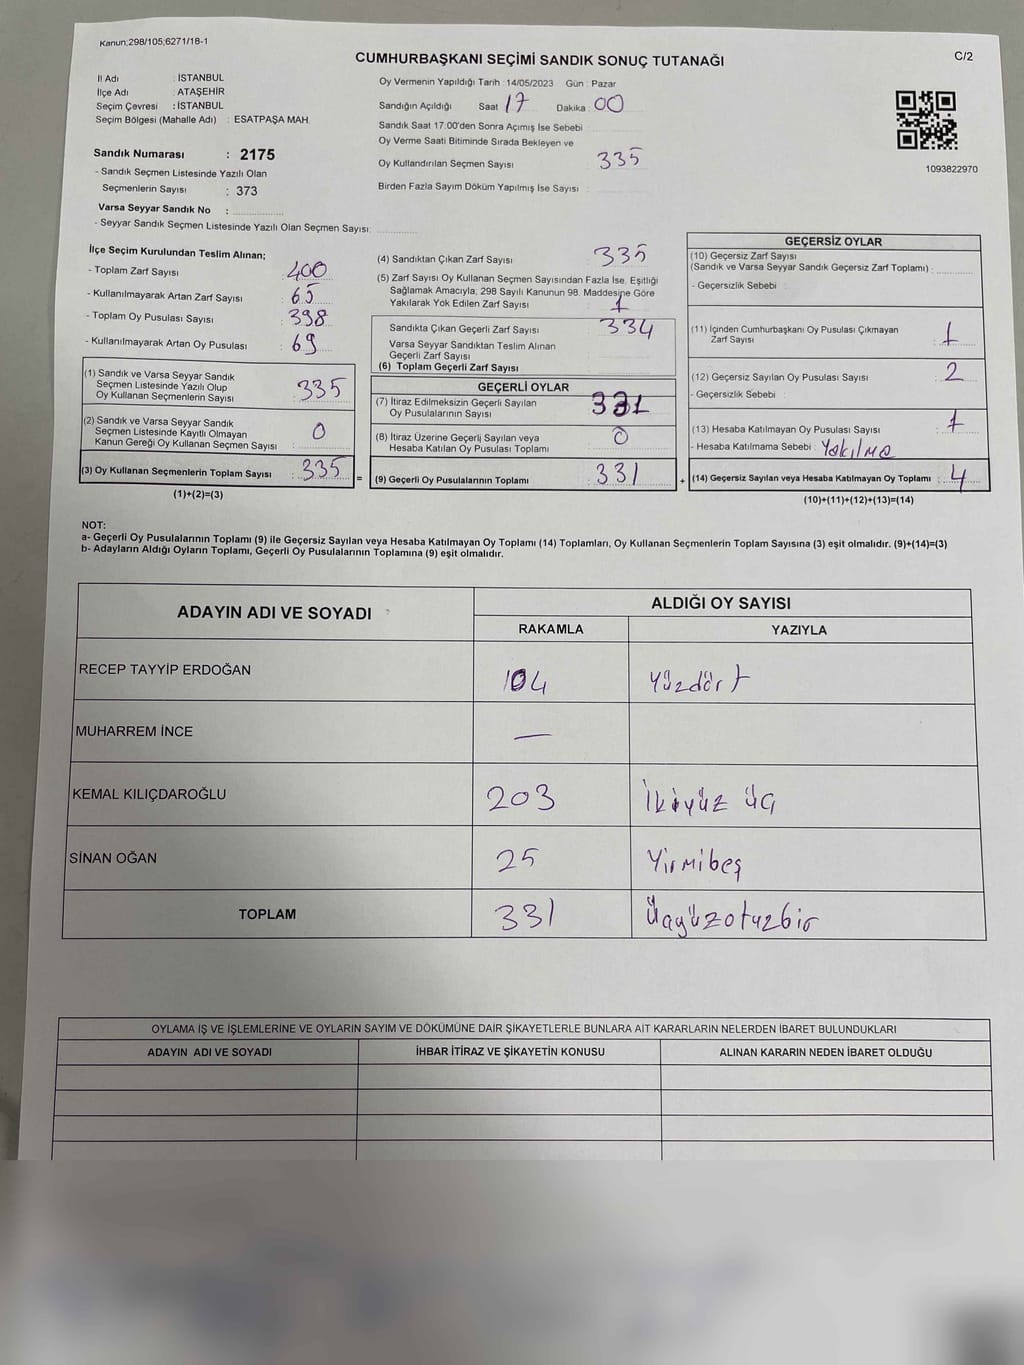 Kanun;298/105;6271/18-1
CUMHURBAŞKANI SEÇİMİ SANDIK SONUÇ TUTANAĞI
C/2
İl Adı : İSTANBUL
İlçe Adı : ATAŞEHİR
Seçim Çevresi : İSTANBUL
Seçim Bölgesi (Mahalle Adı) : ESATPAŞA MAH.
Sandık Numarası : 2175
- Sandık Seçmen Listesinde Yazılı Olan
Seçmenlerin Sayısı : 373
Varsa Seyyar Sandık No :
- Seyyar Sandık Seçmen Listesinde Yazılı Olan Seçmen Sayısı:
Oy Vermenin Yapıldığı Tarih : 14/05/2023 Gün : Pazar
Sandığın Açıldığı Saat 17 Dakika : 00
Sandık Saat 17:00'den Sonra Açımış İse Sebebi
Oy Verme Saati Bitiminde Sırada Bekleyen ve
Oy Kullandırılan Seçmen Sayısı : 335
Birden Fazla Sayım Döküm Yapılmış İse Sayısı :
1093822970
İlçe Seçim Kurulundan Teslim Alınan;
- Toplam Zarf Sayısı : 400
- Kullanılmayarak Artan Zarf Sayısı : 65
- Toplam Oy Pusulası Sayısı : 398
- Kullanılmayarak Artan Oy Pusulası : 69
(1) Sandık ve Varsa Seyyar Sandık
Seçmen Listesinde Yazılı Olup
Oy Kullanan Seçmenlerin Sayısı : 335
(2) Sandık ve Varsa Seyyar Sandık
Seçmen Listesinde Kayıtlı Olmayan
Kanun Gereği Oy Kullanan Seçmen Sayısı : 0
(3) Oy Kullanan Seçmenlerin Toplam Sayısı : 335
(1)+(2)=(3)
=
(4) Sandıktan Çıkan Zarf Sayısı 335
(5) Zarf Sayısı Oy Kullanan Seçmen Sayısından Fazla İse, Eşitliği
Sağlamak Amacıyla, 298 Sayılı Kanunun 98. Maddesine Göre
Yakılarak Yok Edilen Zarf Sayısı 1
Sandıkta Çıkan Geçerli Zarf Sayısı 334
Varsa Seyyar Sandıktan Teslim Alınan
Geçerli Zarf Sayısı
(6) Toplam Geçerli Zarf Sayısı
GEÇERLİ OYLAR
(7) İtiraz Edilmeksizin Geçerli Sayılan
Oy Pusulalarının Sayısı : 331
(8) İtiraz Üzerine Geçerli Sayılan veya
Hesaba Katılan Oy Pusulası Toplamı : 0
(9) Geçerli Oy Pusulalarının Toplamı : 331
+
GEÇERSİZ OYLAR
(10) Geçersiz Zarf Sayısı
(Sandık ve Varsa Seyyar Sandık Geçersiz Zarf Toplamı) :
- Geçersizlik Sebebi :
(11) İçinden Cumhurbaşkanı Oy Pusulası Çıkmayan
Zarf Sayısı : 1
(12) Geçersiz Sayılan Oy Pusulası Sayısı : 2
- Geçersizlik Sebebi :
(13) Hesaba Katılmayan Oy Pusulası Sayısı : 1
- Hesaba Katılmama Sebebi : Yakılma
(14) Geçersiz Sayılan veya Hesaba Katılmayan Oy Toplamı : 4
(10)+(11)+(12)+(13)=(14)
NOT:
a- Geçerli Oy Pusulalarının Toplamı (9) ile Geçersiz Sayılan veya Hesaba Katılmayan Oy Toplamı (14) Toplamları, Oy Kullanan Seçmenlerin Toplam Sayısına (3) eşit olmalıdır. (9)+(14)=(3)
b- Adayların Aldığı Oyların Toplamı, Geçerli Oy Pusulalarının Toplamına (9) eşit olmalıdır.
ADAYIN ADI VE SOYADI ALDIĞI OY SAYISI
RAKAMLA YAZIYLA
RECEP TAYYİP ERDOĞAN 104 Yüzdört
MUHARREM İNCE —
KEMAL KILIÇDAROĞLU 203 İkiyüz üç
SİNAN OĞAN 25 Yirmibeş
TOPLAM 331 Üçyüzotuzbir
OYLAMA İŞ VE İŞLEMLERİNE VE OYLARIN SAYIM VE DÖKÜMÜNE DAİR ŞİKAYETLERLE BUNLARA AİT KARARLARIN NELERDEN İBARET BULUNDUKLARI
ADAYIN ADI VE SOYADI İHBAR İTİRAZ VE ŞİKAYETİN KONUSU ALINAN KARARIN NEDEN İBARET OLDUĞU